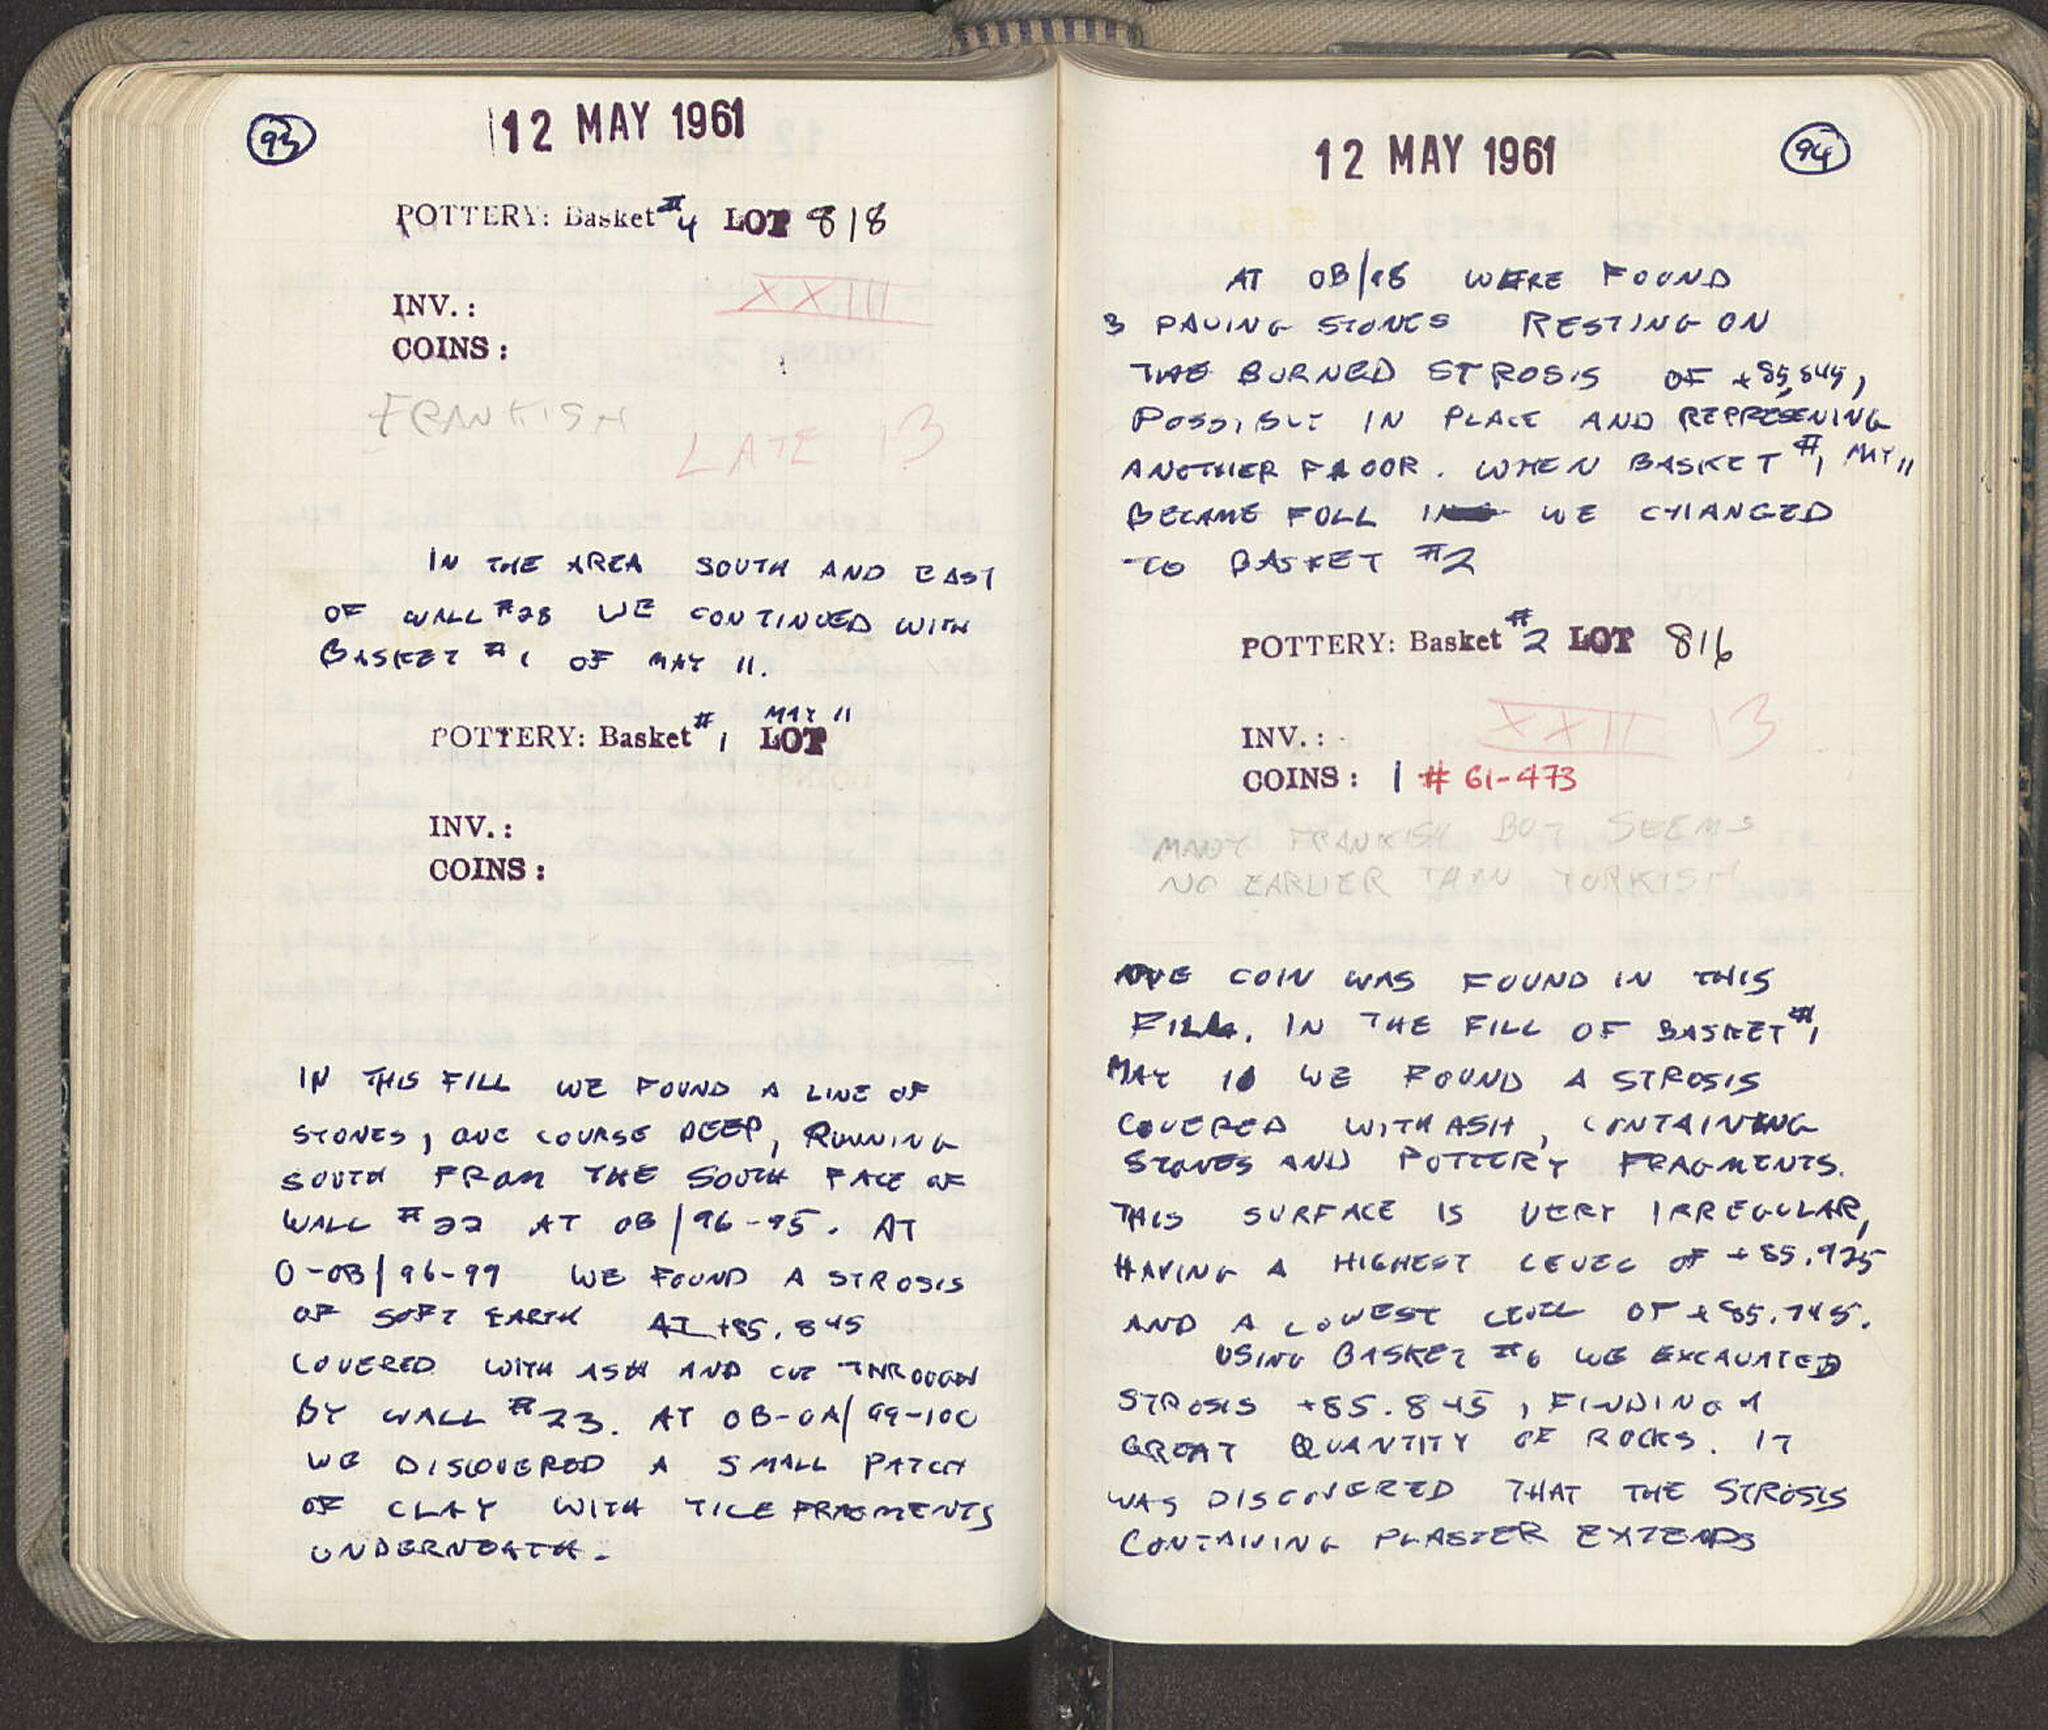 93
12 MAY 1961
POTTERY: Basket #4 LOT 818
XXIII
INV.:
COINS:
FRANKISH
LATE 13
IN THE AREA SOUTH AND EAST
OF WALL #28 WE CONTINUED WITH
BASKET #1 OF MAY 11.
MAY 11
POTTERY: Basket #1 LOT
INV.:
COINS:
IN THIS FILL WE FOUND A LINE OF
STONES, ONE COURSE DEEP, RUNNING
SOUTH FROM THE SOUTH FACE OF
WALL #22 AT OB/96-95. AT
O-OB/96-99 WE FOUND A STROSIS
OF SOFT EARTH AT +85.845
COVERED WITH ASH AND CUT THROUGH
BY WALL #23. AT OB-OA/99-100
WE DISCOVERED A SMALL PATCH
OF CLAY WITH TILE FRAGMENTS
UNDERNEATH.
94
12 MAY 1961
AT OB/98 WERE FOUND
3 PAVING STONES RESTING ON
THE BURNED STROSIS OF +85.845,
POSSIBLY IN PLACE AND REPRESENING
ANOTHER FLOOR. WHEN BASKET #1 MAY 11
BECAME FULL WE CHANGED
TO BASKET #2
POTTERY: Basket #2 LOT 816
XXII 13
INV.:
COINS: 1 # 61-473
MANY FRANKISH BUT SEEMS
NO EARLIER THAN TURKISH
ONE COIN WAS FOUND IN THIS
FILL. IN THE FILL OF BASKET #1
MAY 11 WE FOUND A STROSIS
COVERED WITH ASH, CONTAINING
STONES AND POTTERY FRAGMENTS.
THIS SURFACE IS VERY IRREGULAR,
HAVING A HIGHEST LEVEL OF +85.925
AND A LOWEST LEVEL OF +85.745.
USING BASKET #6 WE EXCAVATED
STROSIS +85.845, FINDING A
GREAT QUANTITY OF ROCKS. IT
WAS DISCOVERED THAT THE STROSIS
CONTAINING PLASTER EXTENDS